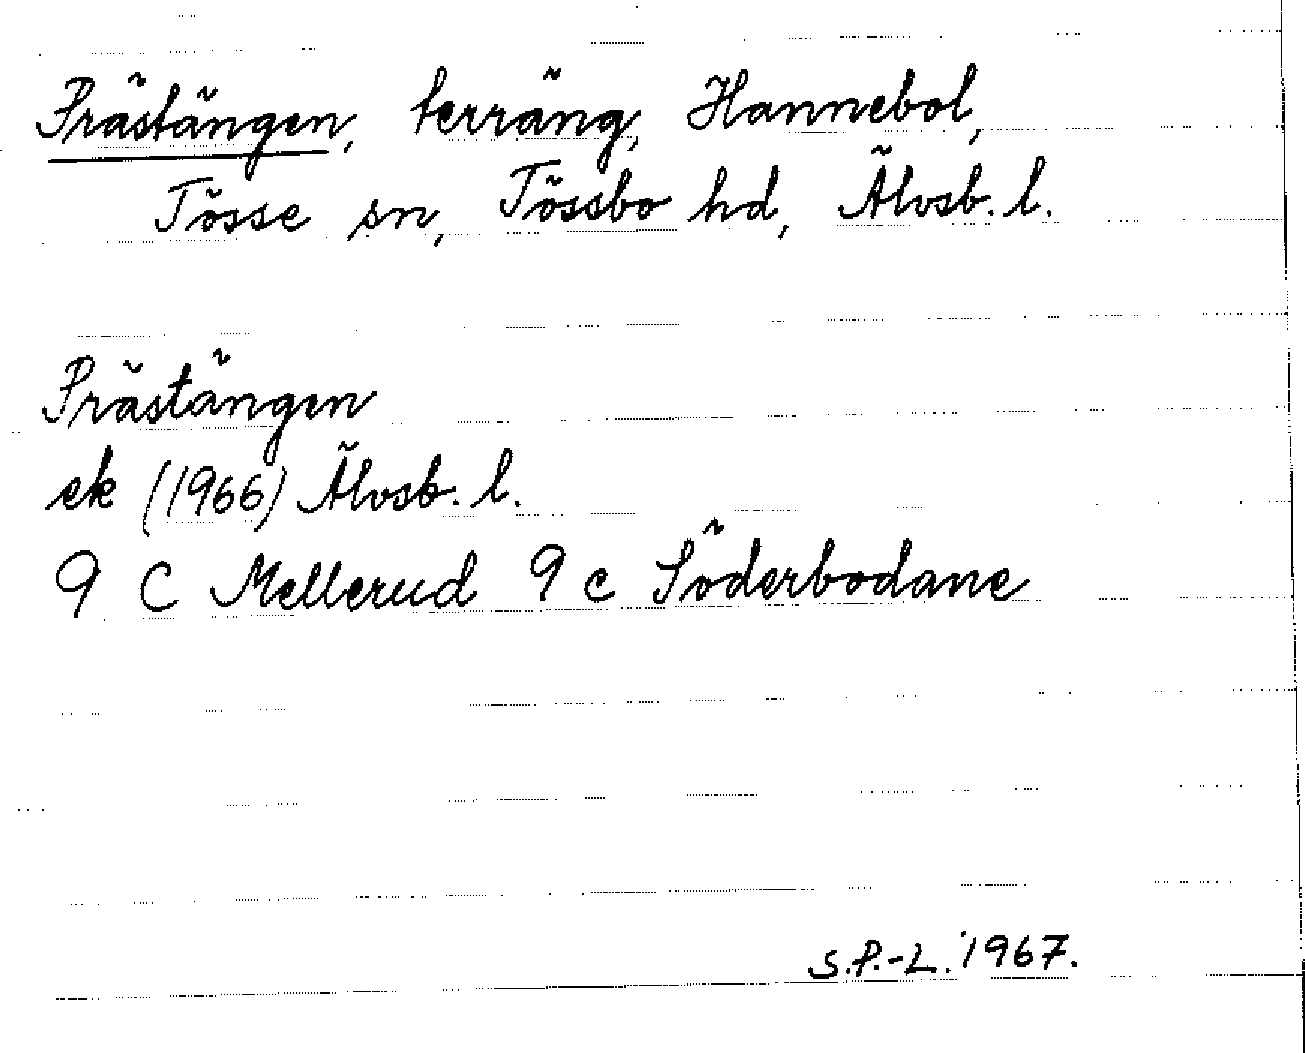 Prästängen, terräng, Hannebol,
Tösse sn, Tössbo hd, Älvsb. l.
Prästängen
ek (1966) Älvsb. l.
9 C Mellerud 9 c Söderbodane
S.P.-L. 1967.